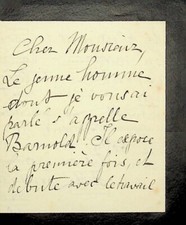 Cher Monsieur,
Le jeune homme
dont je vous ai
parlé s'appelle
Barnold. Il expose
la première fois, et
débute avec le travail